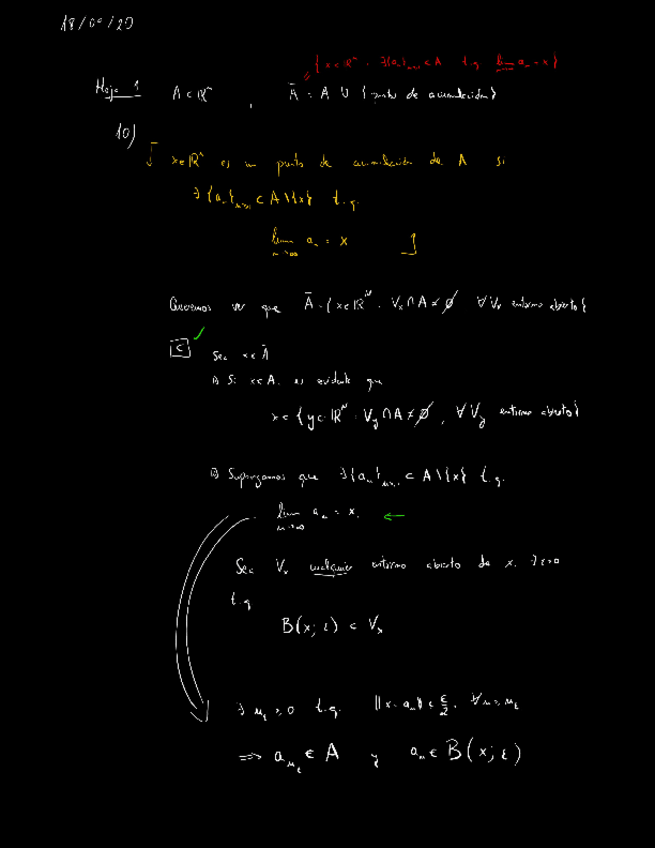 18/09/20
{x∈ℝᴺ : ∃{aₙ}ₙ≥₁ ⊂ A t.q. lim aₙ = x}
n→∞
Hoja 1 A ⊂ ℝᴺ , Ā = A ∪ {puntos de acumulación}
10)
[ x∈ℝᴺ es un punto de acumulación de A si
∃{aₙ}ₙ≥₁ ⊂ A\{x} t.q.
lim aₙ = x ]
n→∞
Queremos ver que Ā = {x∈ℝᴺ : Vₓ∩A ≠ ∅ ∀Vₓ entorno abierto}
⊂ ✓ Sea x∈Ā
i) Si x∈A, es evidente que
x∈{y∈ℝᴺ : V_y∩A ≠ ∅, ∀V_y entorno abierto}
ii) Supongamos que ∃{aₙ}ₙ≥₁ ⊂ A\{x} t.q.
lim aₙ = x. ←
n→∞
Sea Vₓ cualquier entorno abierto de x. ∃ε>0
t.q
B(x; ε) ⊂ Vₓ
∃ n_ε > 0 t.q. ||x - aₙ|| < ε/2, ∀n ≥ n_ε
⟹ a_{n_ε} ∈ A y aₙ ∈ B(x; ε)